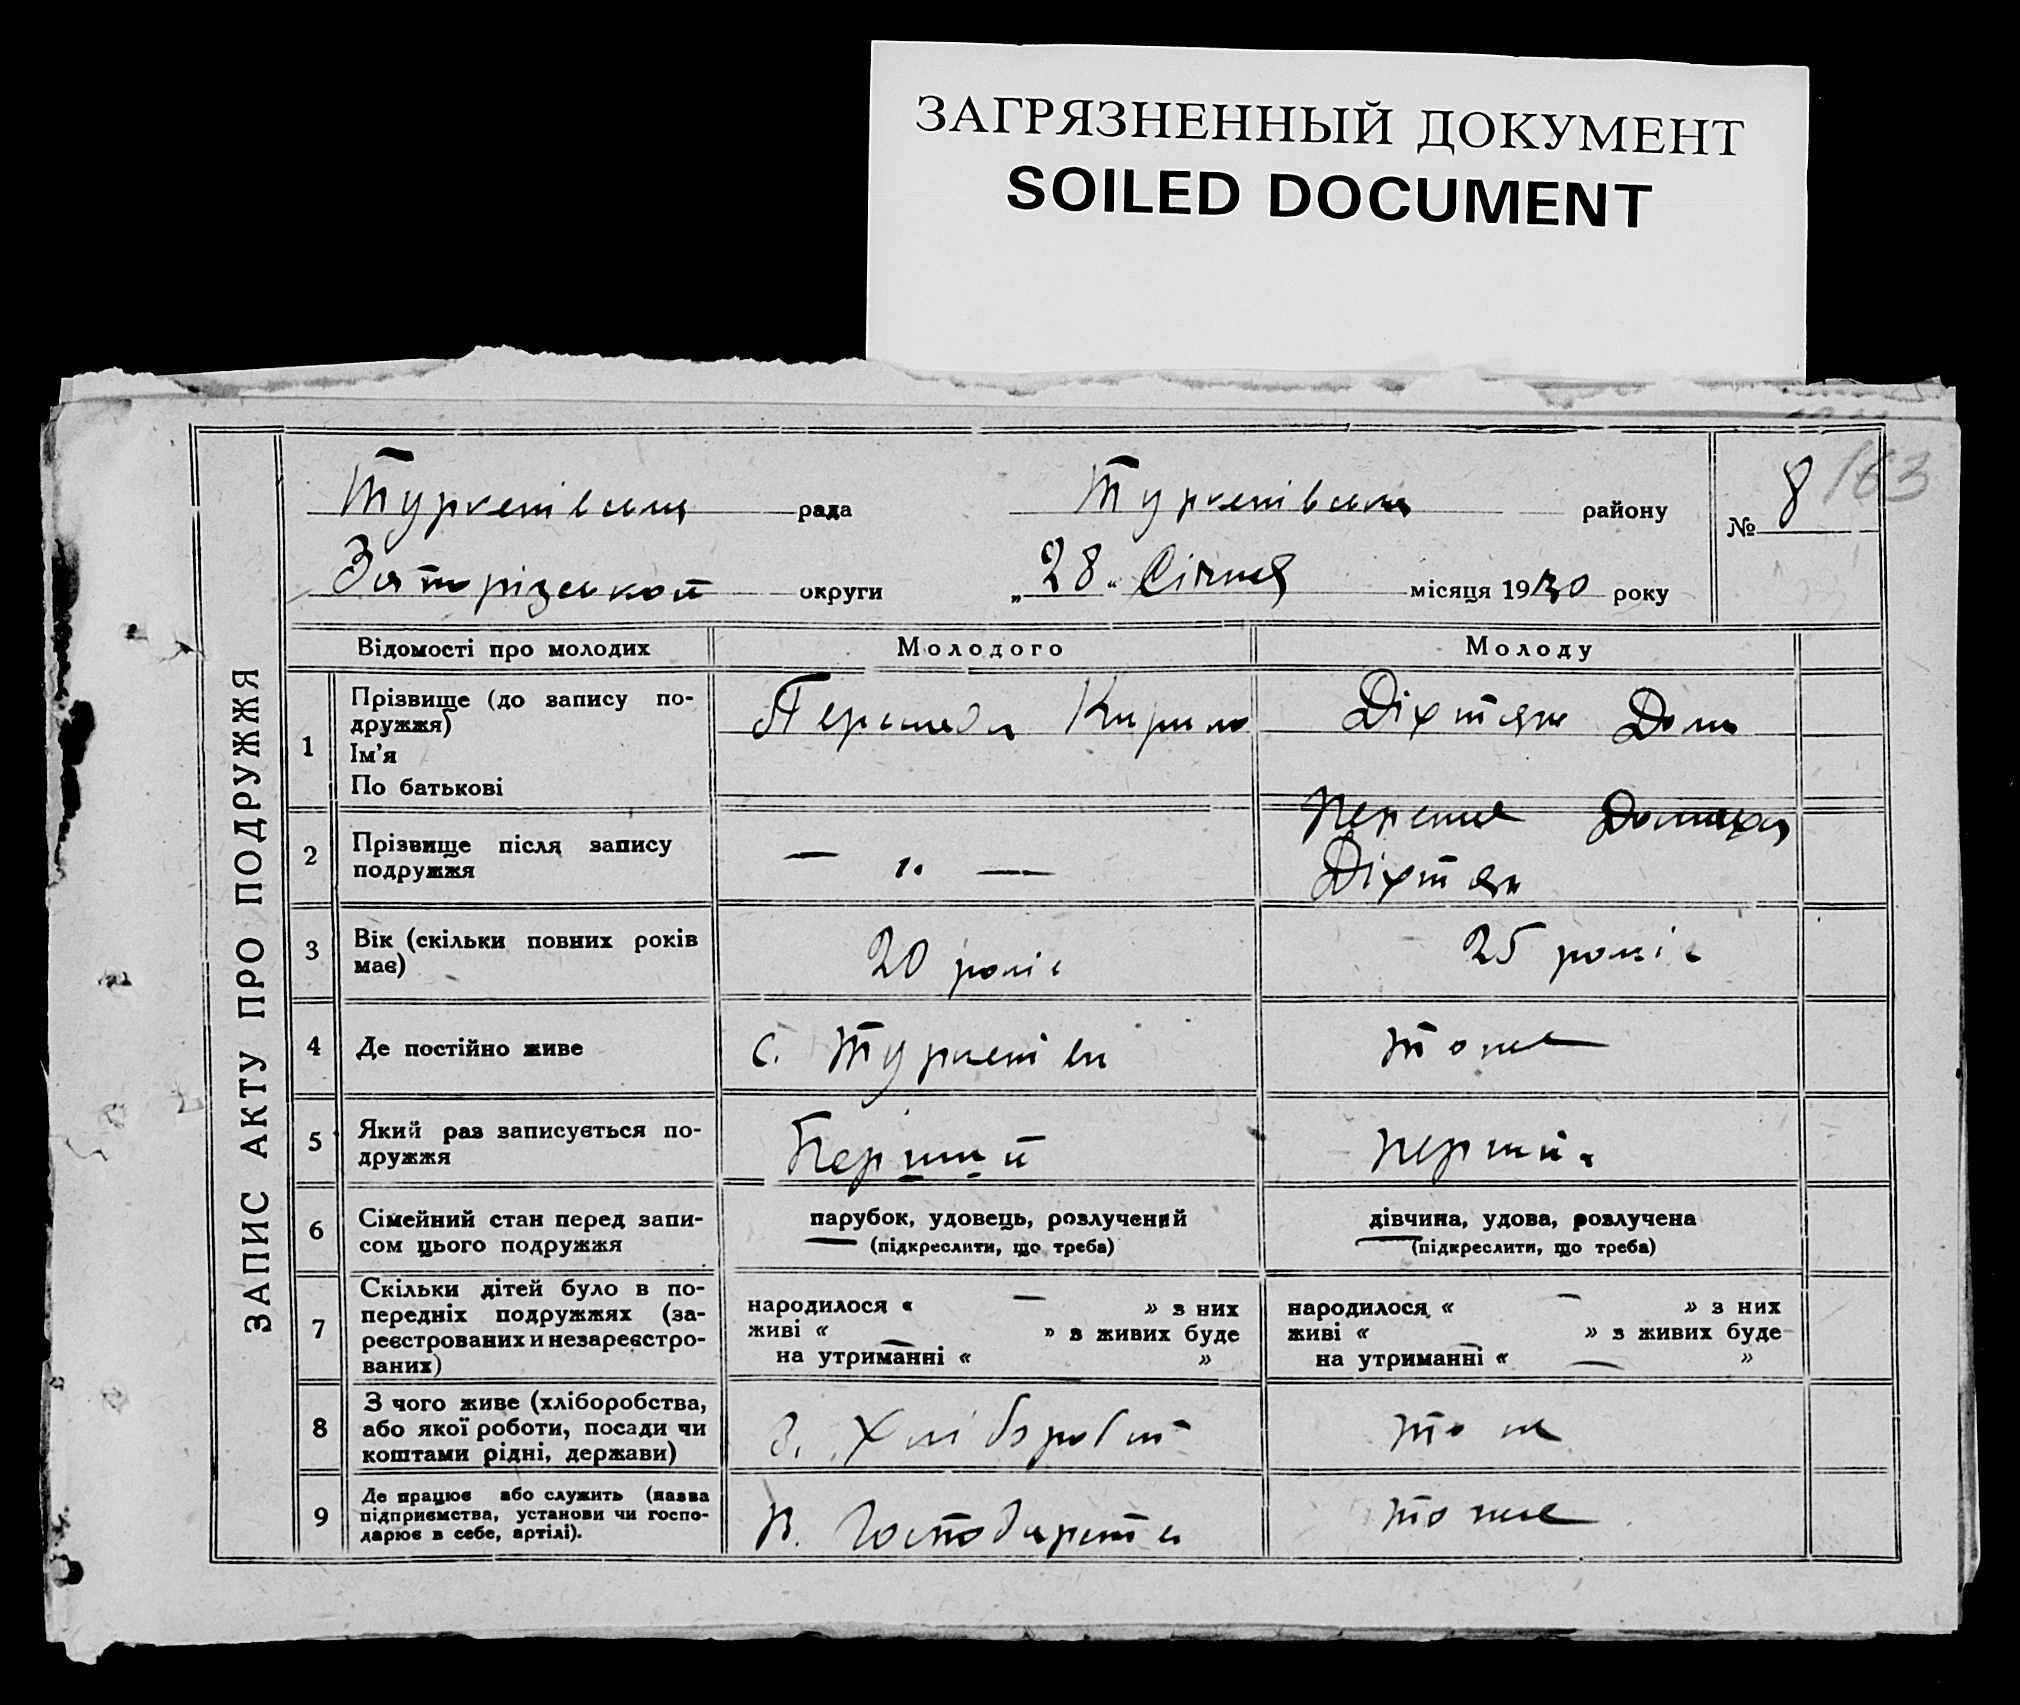 ЗАГРЯЗНЕННЫЙ ДОКУМЕНТ
SOILED DOCUMENT
ЗАПИС АКТУ ПРО ПОДРУЖЖЯ
рада району № 8 163
округи „28“ Січня місяця 1930 року
Відомості про молодих Молодого Молоду
1 Прізвище (до запису по-
дружжя)
Ім'я
По батькові
Кирило Діхтяр
2 Прізвище після запису
подружжя
— „ —
Діхтяр
3 Вік (скільки повних років
має)
20 років 25 років
4 Де постійно живе с. тоже
5 Який раз записується по-
дружжя
Перший перший
6 Сімейний стан перед запи-
сом цього подружжя
парубок, удовець, розлучений
(підкреслити, що треба)
дівчина, удова, розлучена
(підкреслити, що треба)
7 Скільки дітей було в по-
передніх подружжях (за-
реєстрованих и незареєстро-
ваних)
народилося « — » з них
живі « » з живих буде
на утриманні « — »
народилося « — » з них
живі « » з живих буде
на утриманні « — »
8 З чого живе (хліборобства,
або якої роботи, посади чи
коштами рідні, держави)
з. Хліборобст тоже
9 Де працює або служить (назва
підприємства, установи чи госпо-
дарює в себе, артілі).
в. Господарстві тоже